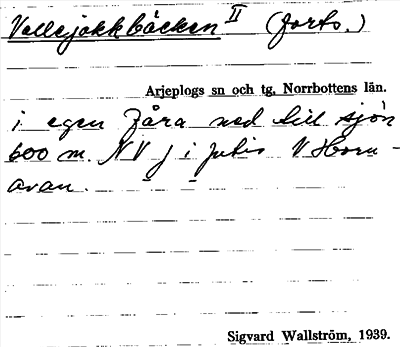 Vallejokkbäcken II (forts.)
Arjeplogs sn och tg, Norrbottens län.
i egen fåra ned till sjön
600 m. NV i V Horn-
avan.
Sigvard Wallström, 1939.